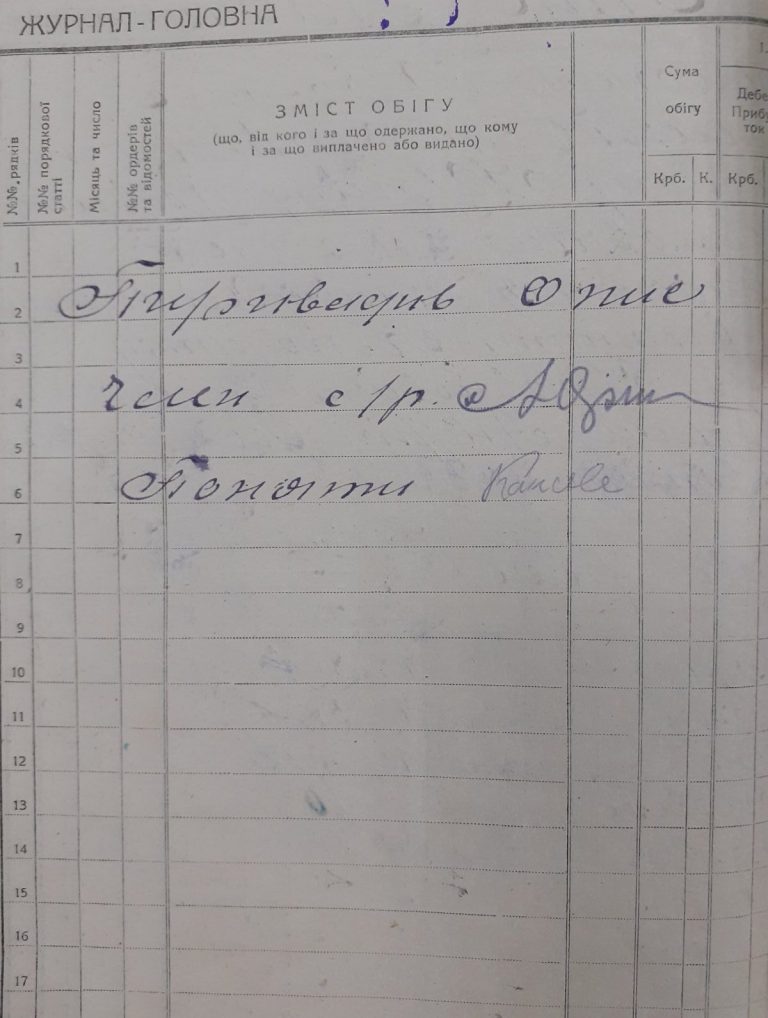 ЖУРНАЛ-ГОЛОВНА
№№ рядків
№№ порядкової статті
Місяць та число
№№ ордерів та відомостей
ЗМІСТ ОБІГУ
(що, від кого і за що одержано, що кому
і за що виплачено або видано)
Сума
обігу
Крб.
К.
Дебе
Прибу
ток
Крб.
1
2
Опис
3
4 член с/р.
5
6 Поняти
7
8
9
10
11
12
13
14
15
16
17